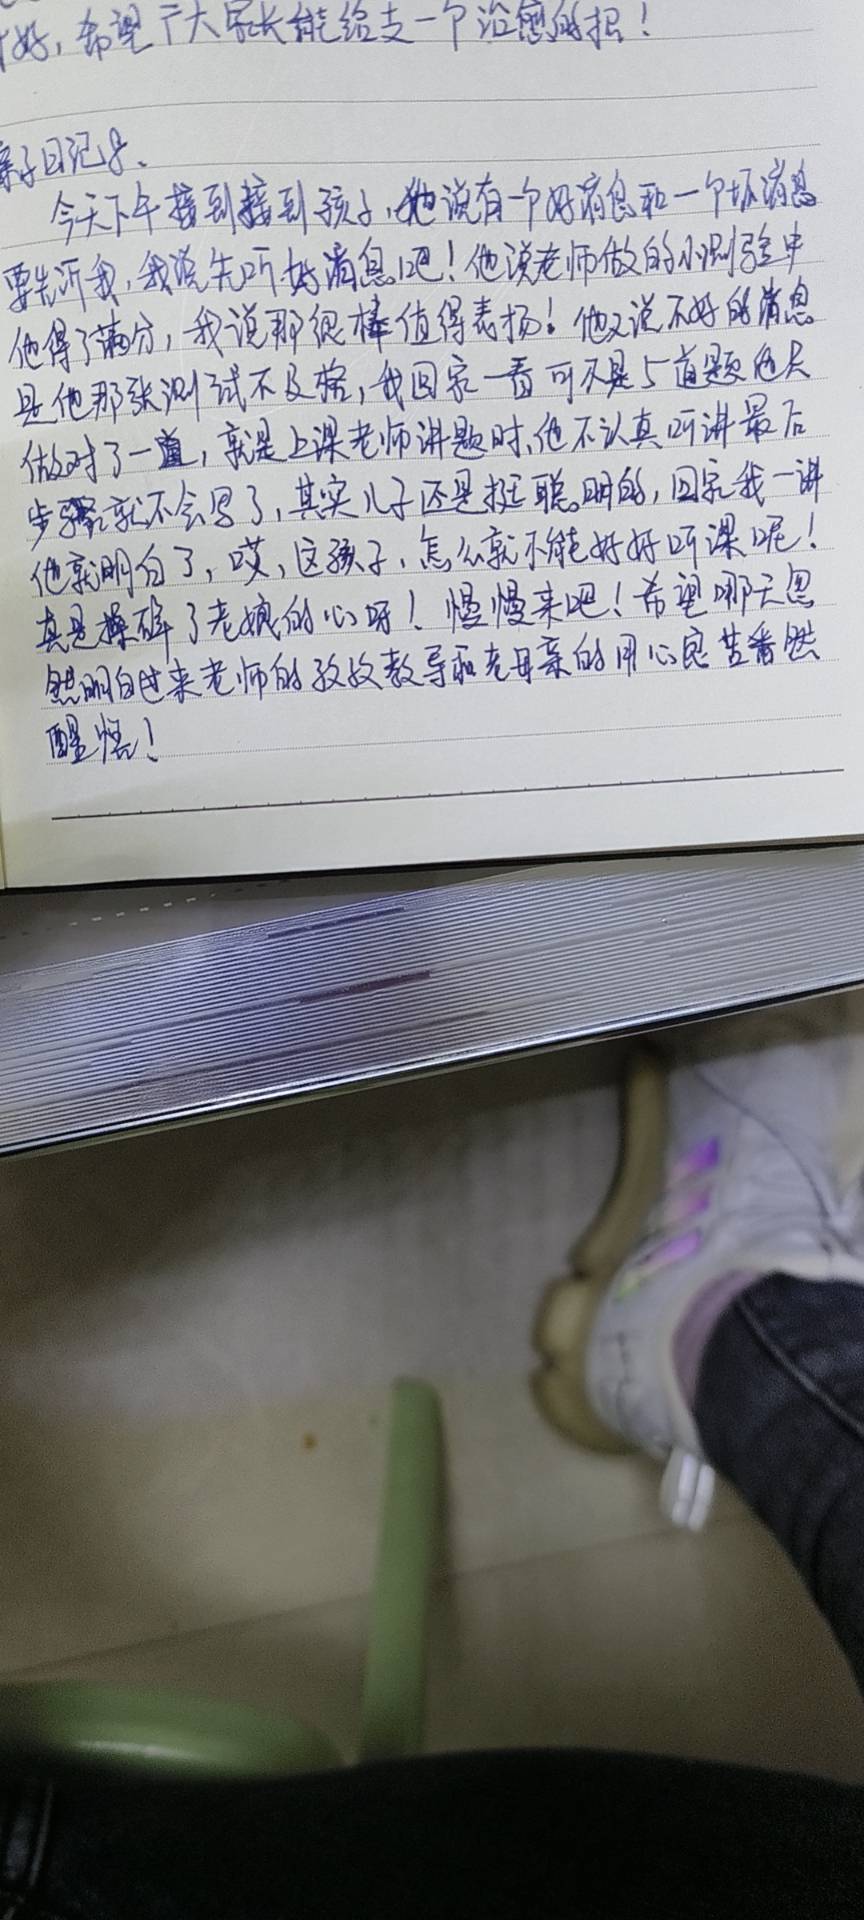 好，希望广大家长能给支一个治愈的招！
亲子日记8、
今天下午接到接到孩子，他说有一个好消息和一个坏消息
要告诉我，我说先听好消息吧！他说老师做的小测验中
他得了满分，我说那很棒值得表扬！他又说不好的消息
是他那张测试不及格，我回家一看可不是5道题他只
做对了一道，就是上课老师讲题时，他不认真听讲最后
步骤就不会写了，其实儿子还是挺聪明的，回家我一讲
他就明白了，哎，这孩子，怎么就不能好好听课呢！
真是操碎了老娘的心呀！慢慢来吧！希望哪天忽
然明白过来老师的孜孜教导和老母亲的用心良苦番然
醒悟！